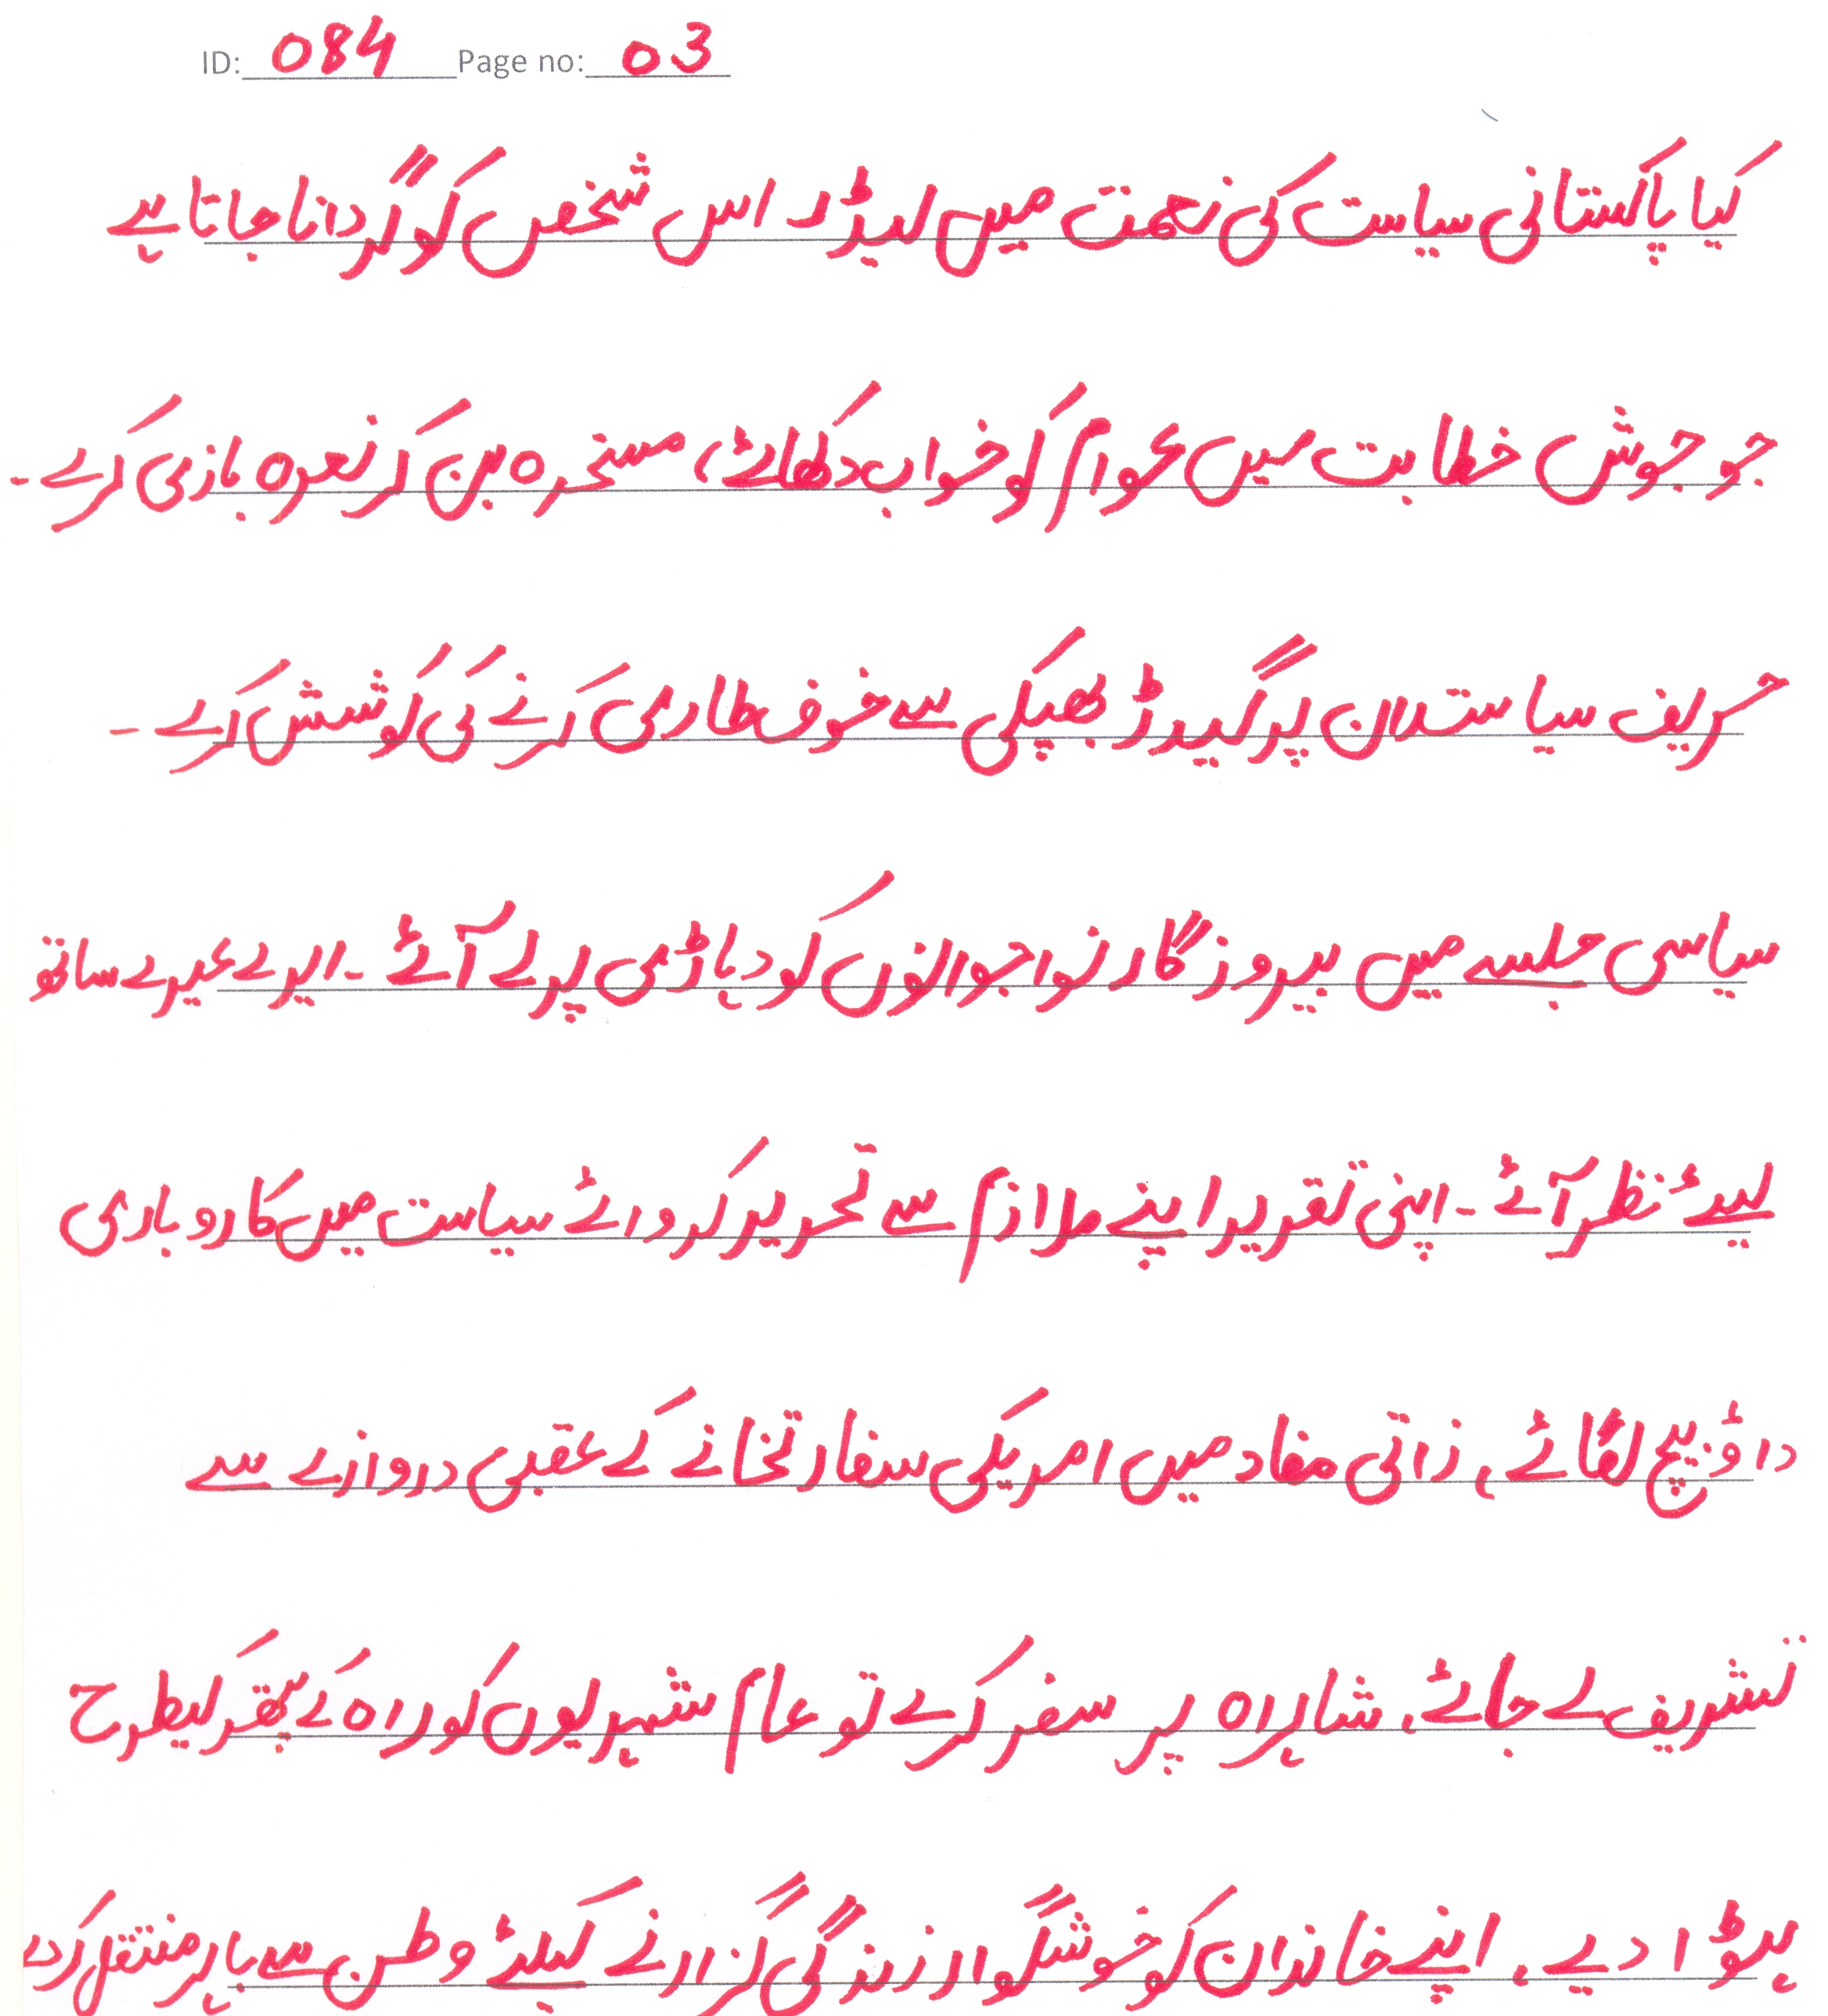 ID: 084 Page no: 03
کیا پاکستانی سیاست کی نعمت میں لیڈر اس شخص کو گردانا جاتا ہے
جو جوش خطابت میں عوام کو خواب دکھائے، مسخرہ بن کر نعرہ بازی کرے۔
حریف سیاستدان پر گیدڑ بھپکی سے خوف طاری کرنے کی کوشش کرے ۔
سیاسی جلسے میں بیروزگار نواجوانوں کو دہاڑی پر لے آئے ۔ ایرے غیرے ساتھ
لیئے نظر آئے ۔ اپنی تقریر اپنے ملازم سے تحریر کروائے سیاست میں کاروباری
داؤ پیچ لگائے ، زاتی مفاد میں امریکی سفارتخانے کے عقبی دروازے سے
تشریف لے جائے، شاہراہ پر سفر کرے تو عام شہریوں کو راہ کے پتھر کیطرح
ہٹوا دے ، اپنے خاندان کو خوشگوار زندگی گزارنے کیلئے وطن سے باہر منتقل کردے